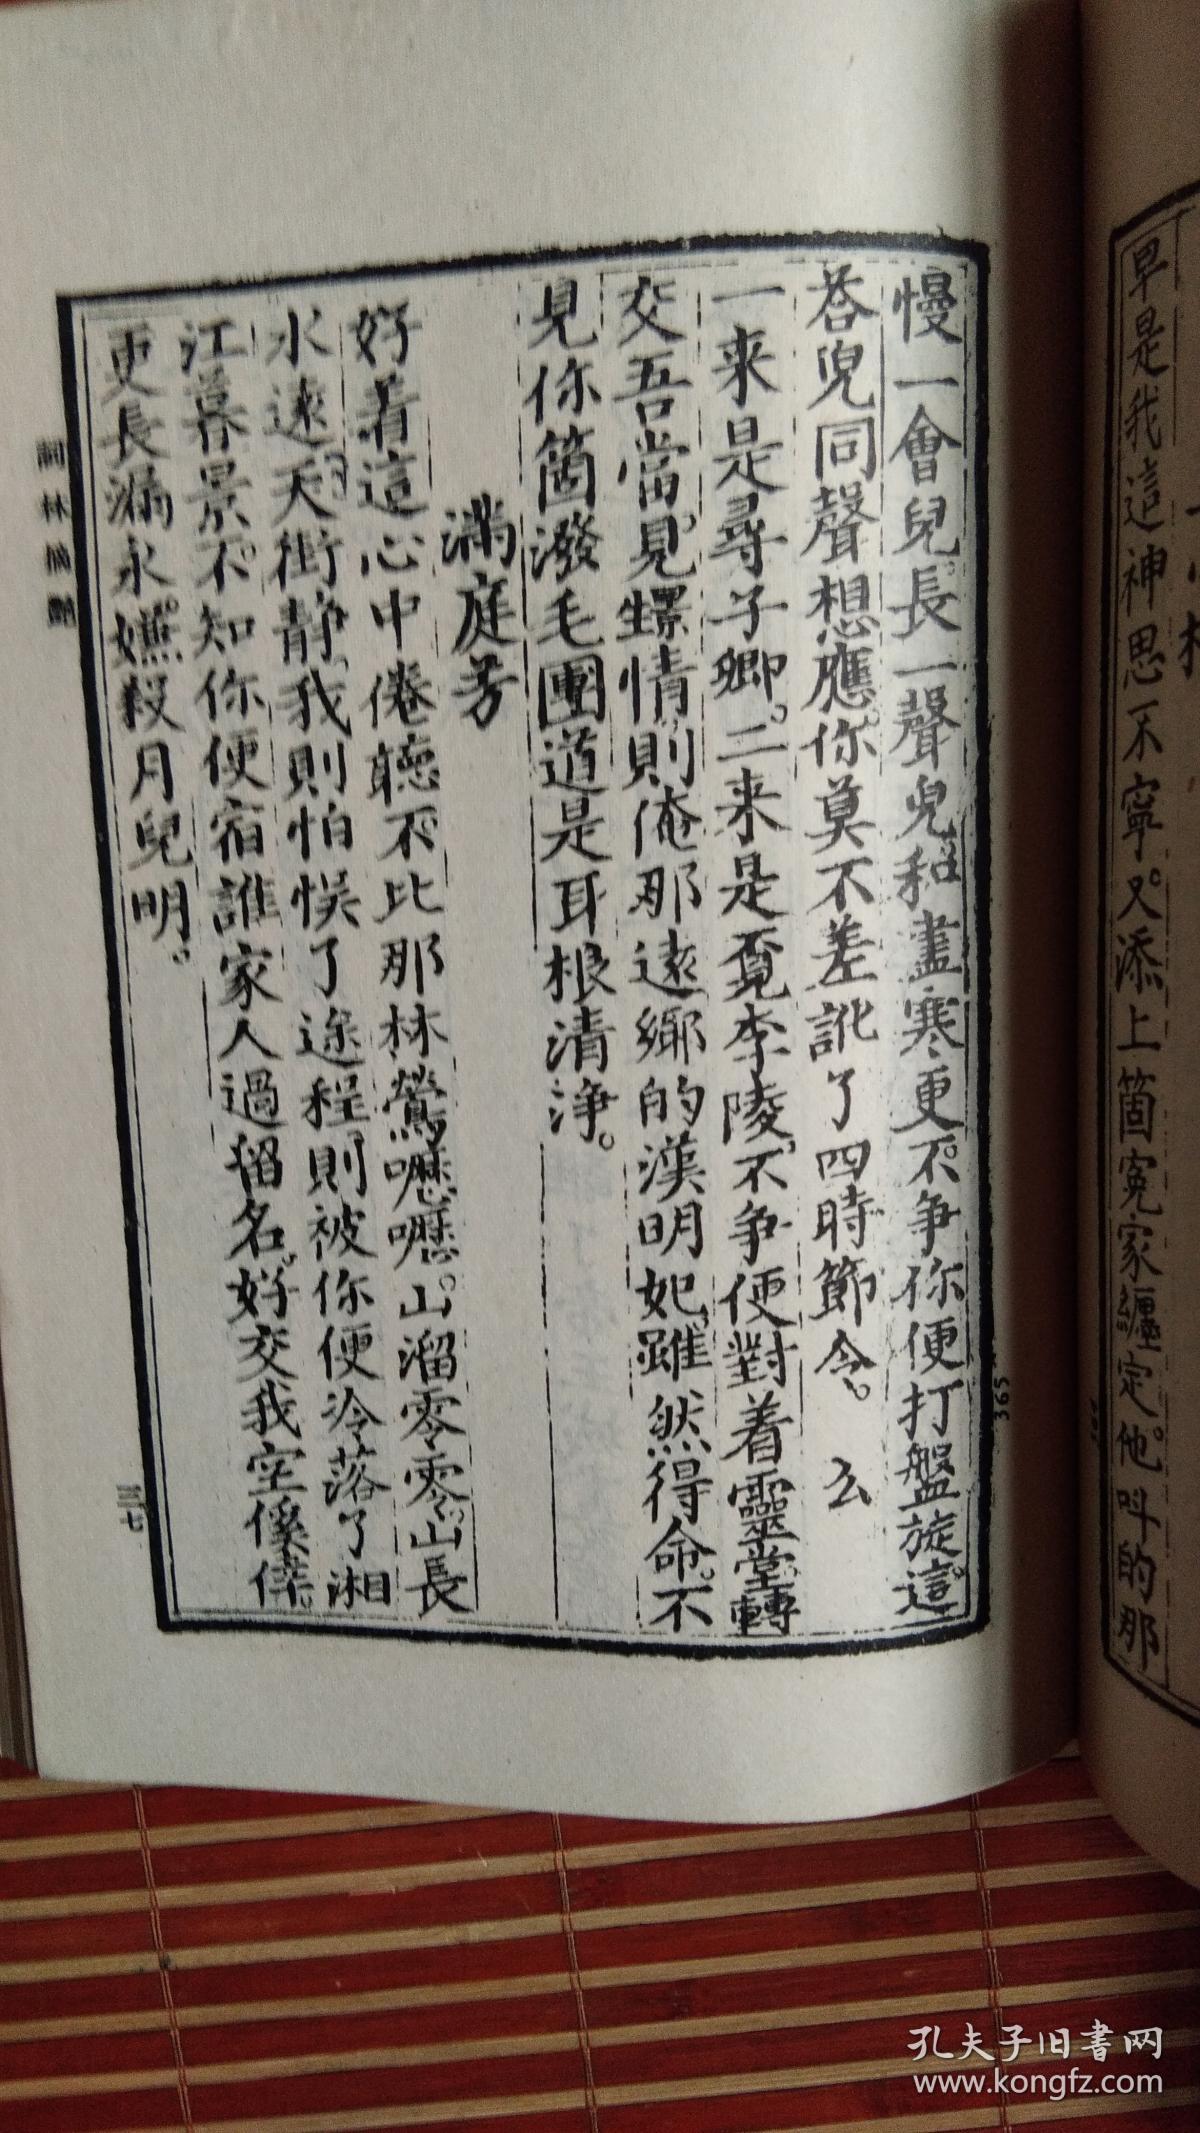 早是我這神思不寧又添上箇寃家纏定他叫的那
慢一會兒長一聲兒和盡寒更不争你便打盤旋這
荅兒同聲想應你莫不差訛了四時節令 么
一来是尋子卿二来是覔李陵不争便對着靈堂轉
交吾當見𧒽情則俺那遠鄉的漢明妃雖然得命不
見你箇潑毛團道是耳根清淨
滿庭芳
好着這心中倦聽不比那林鶯嚦嚦山溜零零山長
水遠天街静我則怕悮了途程則被你便泠落了湘
江暮景不知你便宿誰家人過留名好交我空傒倖
更長漏永嫌殺月兒明
詞林摘艷
三七
365
孔夫子旧书网
www.kongfz.com